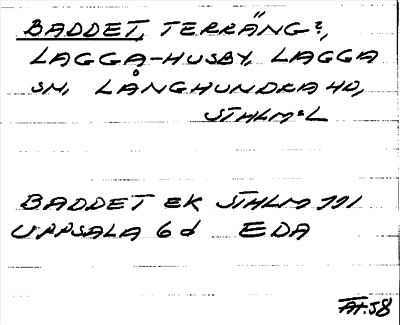 BADDET, TERRÄNG?,
LAGGA-HUSBY, LAGGA
SN, LÅNGHUNDRA HD,
STHLMS L
BADDET EK STHLM 991
UPPSALA 6 d EDA